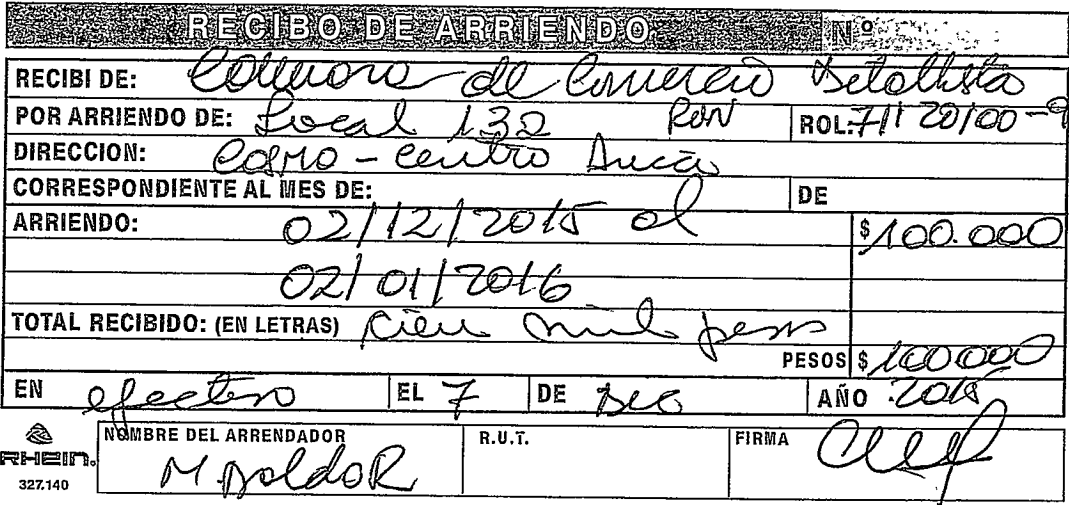 RECIBO DE ARRIENDO Nº
RECIBI DE: Camara de Comercio Detallista
POR ARRIENDO DE: Local 132 ROL: 71120100-9
DIRECCION: centro
CORRESPONDIENTE AL MES DE: DE
ARRIENDO: 02/12/2015 al $ 100.000
02/01/2016
TOTAL RECIBIDO: (EN LETRAS) cien mil pesos
PESOS $ 100000
EN efectivo EL 7 DE Dec AÑO 2015
NOMBRE DEL ARRENDADOR R.U.T. FIRMA
RHEIN.
327.140